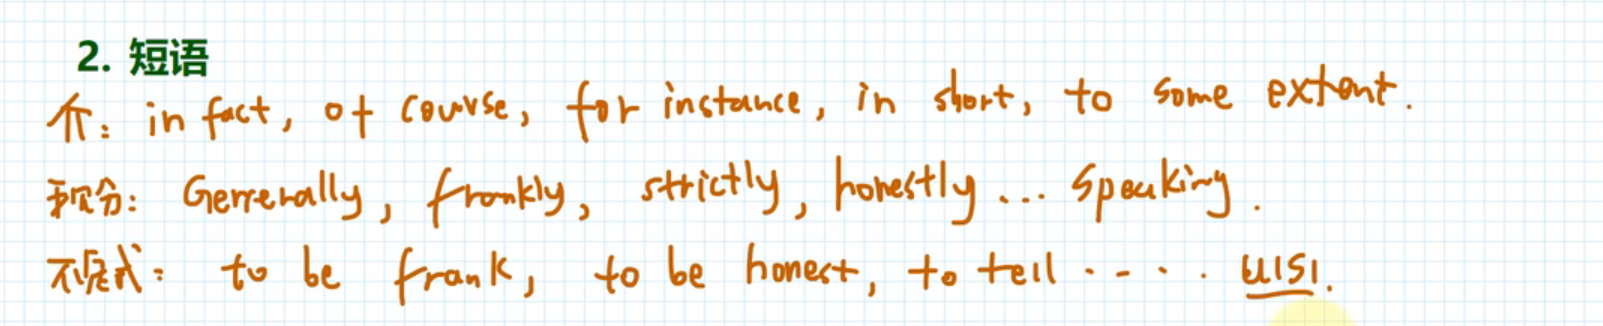 2. 短语
介: in fact, of course, for instance, in short, to some extent.
现分: Generally, frankly, strictly, honestly... speaking.
不定式: to be frank, to be honest, to tell .....